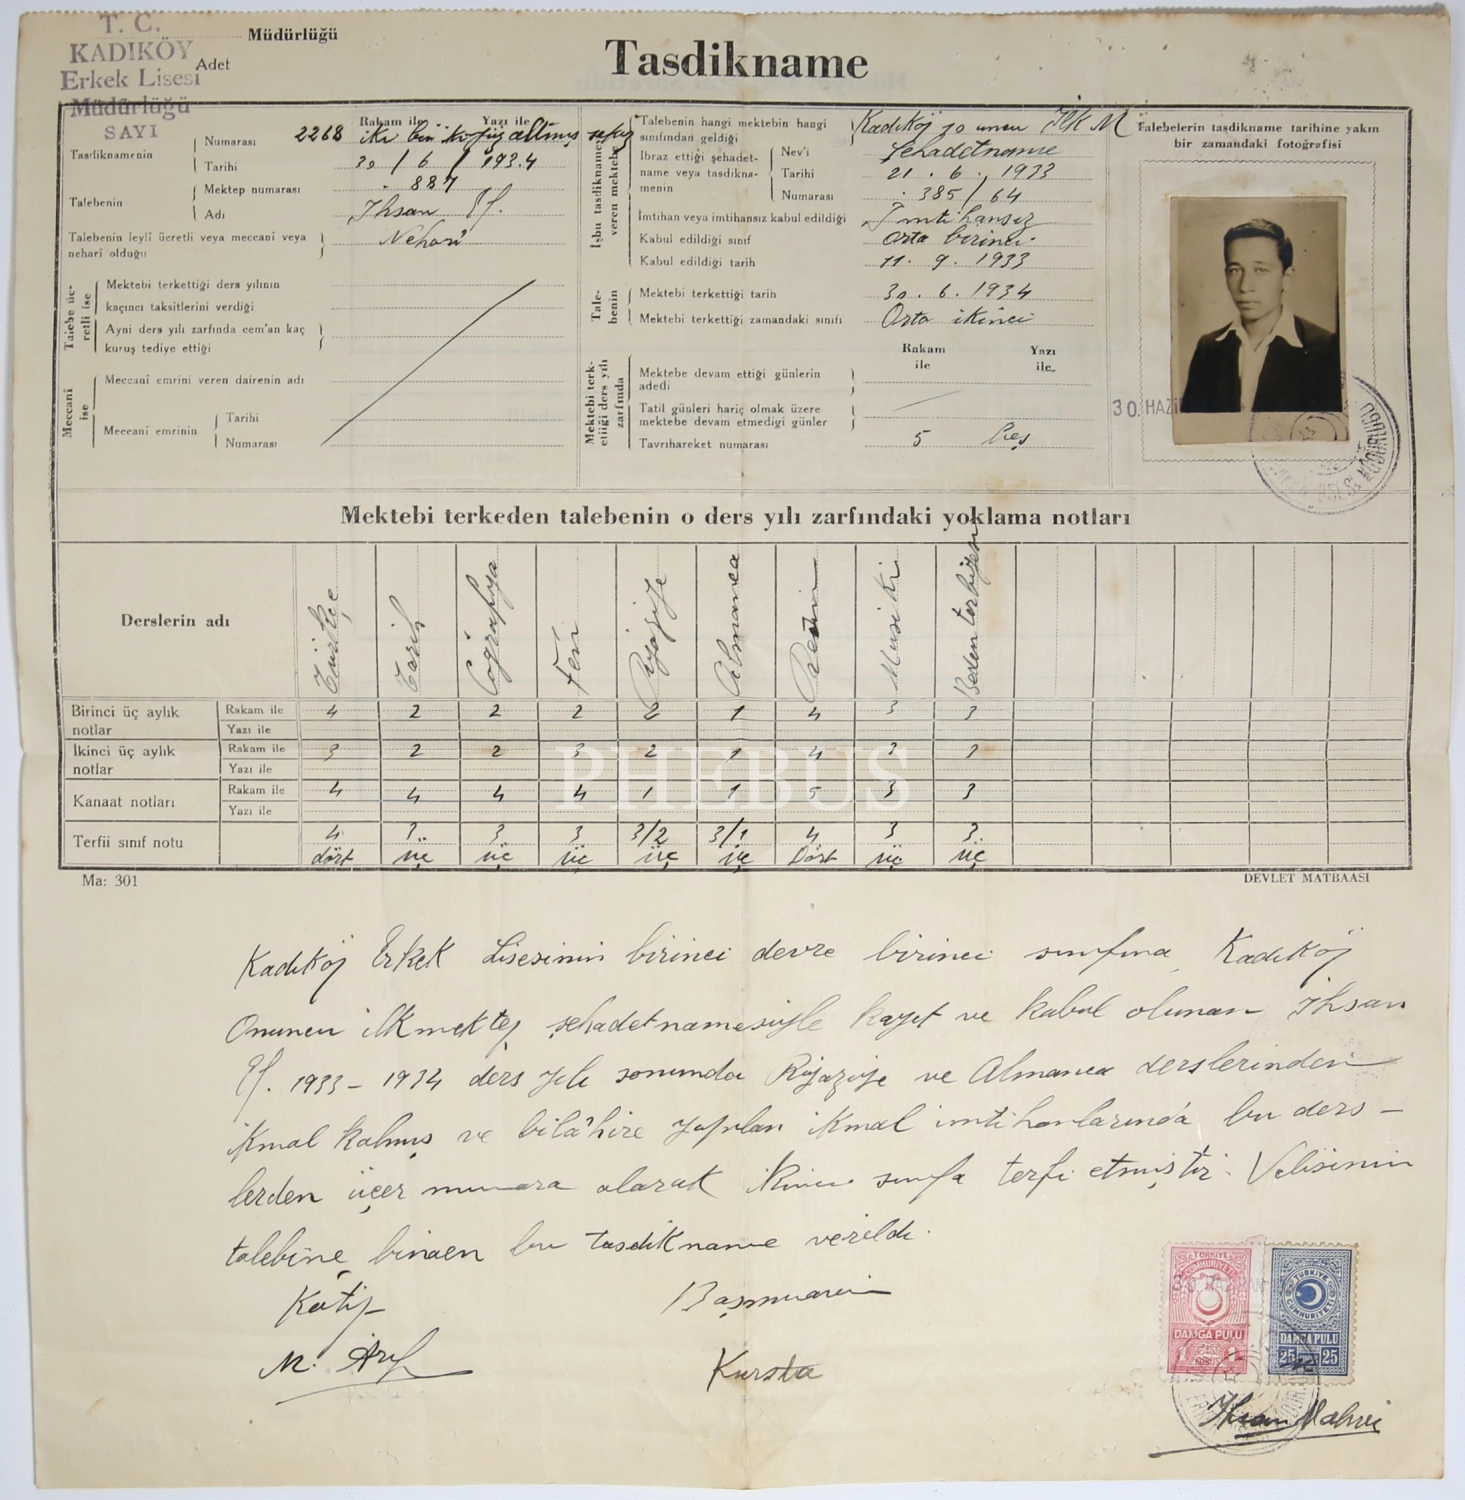 T. C.
KADIKÖY
Erkek Lisesi
Müdürlüğü
SAYI
Müdürlüğü
Adet
Tasdikname
Rakam ile Yazı ile
Tasdiknamenin
Numarası 2268 iki bin iki yüz altmış sekiz
Tarihi 30 / 6 / 1934
Talebenin
Mektep numarası 887
Adı İhsan Ef.
Talebenin leylî ücretli veya meccanî veya
neharî olduğu Neharî
Talebe ücretli ise
Mektebi terkettiği ders yılının
kaçıncı taksitlerini verdiği
Ayni ders yılı zarfında cem'an kaç
kuruş tediye ettiği
Meccani ise
Meccanî emrini veren dairenin adı
Meccanî emrinin
Tarihi
Numarası
İşbu tasdiknameyi veren mektebe
Talebenin hangi mektebin hangi
sınıfından geldiği Kadıköy 10 uncu İlk M
İbraz ettiği şehadet-
name veya tasdikna-
menin
Nev'i Şehadetname
Tarihi 21 . 6 . 1933
Numarası 385 / 64
İmtihan veya imtihansız kabul edildiği İmtihansız
Kabul edildiği sınıf Orta birinci
Kabul edildiği tarih 11 . 9 . 1933
Talebenin
Mektebi terkettiği tarih 30 . 6 . 1934
Mektebi terkettiği zamandaki sınıfı Orta ikinci
Rakam ile Yazı ile
Mektebi terkettiği ders yılı zarfında
Mektebe devam ettiği günlerin
adedi
Tatil günleri hariç olmak üzere
mektebe devam etmedigi günler
Tavrıhareket numarası 5 beş
Talebelerin tasdikname tarihine yakın
bir zamandaki fotoğrafisi
30 HAZİ
Mektebi terkeden talebenin o ders yılı zarfındaki yoklama notları
Derslerin adı Türkçe Tarih Coğrafya Fen Riyaziye Almanca Resim Musiki Beden terbiyesi
Birinci üç aylık notlar Rakam ile 4 2 2 2 2 1 4 3 3
Yazı ile
İkinci üç aylık notlar Rakam ile 3 2 2 3 2 1 4 3 3
Yazı ile
Kanaat notları Rakam ile 4 4 4 4 1 1 5 3 3
Yazı ile
Terfii sınıf notu 4 3 3 3 3/2 3/1 4 3 3
dört üç üç üç üç üç Dört üç üç
PHEBUS
Ma: 301
DEVLET MATBAASI
Kadıköy Erkek Lisesinin birinci devre birinci sınıfına Kadıköy
Onuncu ilkmektep şehadetnamesiyle kayıt ve kabul olunan İhsan
Ef. 1933 - 1934 ders yılı sonunda Riyaziye ve Almanca derslerinden
ikmal kalmış ve bilâhire yapılan ikmal imtihanlarında bu ders -
lerden üçer numara alarak ikinci sınıfa terfi etmiştir. Velisinin
talebine binaen bu tasdikname verildi.
Kâtip Başmuavin
M. Arif
TÜRKİYE CUMHURİYETİ
DAMGA PULU
1 1
TÜRKİYE CUMHURİYETİ
DAMGA PULU
25 25